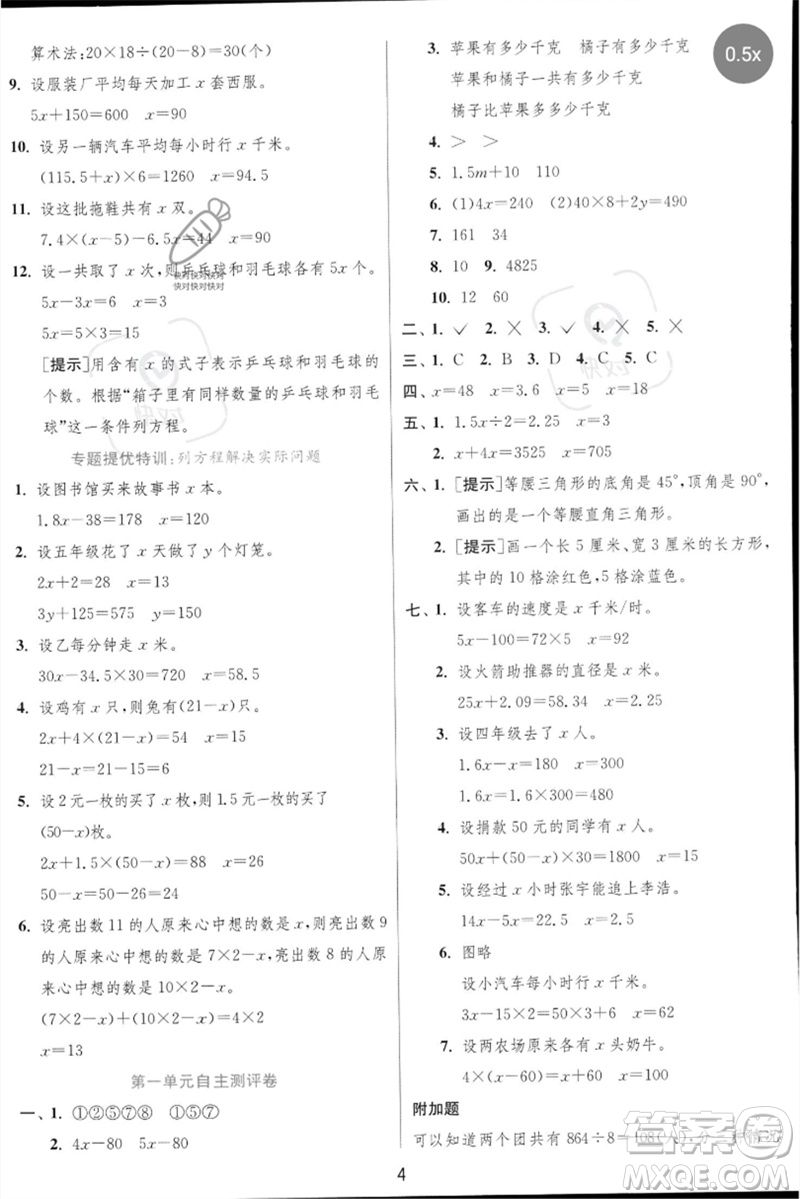 算术法:20×18÷(20-8)=30(个)
9. 设服装厂平均每天加工 x 套西服。
5x+150=600 x=90
10. 设另一辆汽车平均每小时行 x 千米。
(115.5+x)×6=1260 x=94.5
11. 设这批拖鞋共有 x 双。
7.4×(x-5)-6.5x=44 x=90
12. 设一共取了 x 次,则乒乓球和羽毛球各有 5x 个。
5x-3x=6 x=3
5x=5×3=15
[提示]用含有 x 的式子表示乒乓球和羽毛球
的个数。根据“箱子里有同样数量的乒乓球和羽毛
球”这一条件列方程。
专题提优特训:列方程解决实际问题
1. 设图书馆买来故事书 x 本。
1.8x-38=178 x=120
2. 设五年级花了 x 天做了 y 个灯笼。
2x+2=28 x=13
3y+125=575 y=150
3. 设乙每分钟走 x 米。
30x-34.5×30=720 x=58.5
4. 设鸡有 x 只,则兔有(21-x)只。
2x+4×(21-x)=54 x=15
21-x=21-15=6
5. 设 2 元一枚的买了 x 枚,则 1.5 元一枚的买了
(50-x)枚。
2x+1.5×(50-x)=88 x=26
50-x=50-26=24
6. 设亮出数 11 的人原来心中想的数是 x,则亮出数 9
的人原来心中想的数是(7×2-x),亮出数 2 的人
原来心中想的数是(10×2-x)。
(7×2-x)+(10×2-x)=4×2
x=13
第一单元自主测评卷
一、1. ①②⑤⑦⑧ ①⑤⑦
2. 4x-80 5x-80
3. 苹果有多少千克 橘子有多少千克
苹果和橘子一共有多少千克
橘子比苹果多多少千克
4. > >
5. 1.5m+10 110
6. (1)4x=240 (2)40×8+2y=490
7. 161 34
8. 10 9. 4825
10. 12 60
二、1. ✓ 2. × 3. ✓ 4. × 5. ×
三、1. C 2. B 3. D 4. C 5. C
四、x=48 x=3.6 x=5 x=18
五、1. 1.5x÷2=2.25 x=3
2. x+4x=3525 x=705
六、1. [提示]等腰三角形的底角是 45°,顶角是 90°,
画出的是一个等腰直角三角形。
2. [提示]画一个长 5 厘米、宽 3 厘米的长方形,
其中的 10 格涂红色,5 格涂蓝色。
七、1. 设客车的速度是 x 千米/时。
5x-100=72×5 x=92
2. 设火箭助推器的直径是 x 米。
25x+2.09=58.34 x=2.25
3. 设四年级去了 x 人。
1.6x-x=180 x=300
1.6x=1.6×300=480
4. 设捐款 50 元的同学有 x 人。
50x+(50-x)×30=1800 x=15
5. 设经过 x 小时张宇能追上李浩。
14x-5x=22.5 x=2.5
6. 图略
设小汽车每小时行 x 千米。
3x-15×2=50×3+6 x=62
7. 设两农场原来各有 x 头奶牛。
4×(x-60)=x x=80
附加题
可以知道两个团共有 864÷8=108(人),分三种情况
4
0.5x
快对快对快对
快对快对快对
快对
快对
答案圈
MXQE.COM